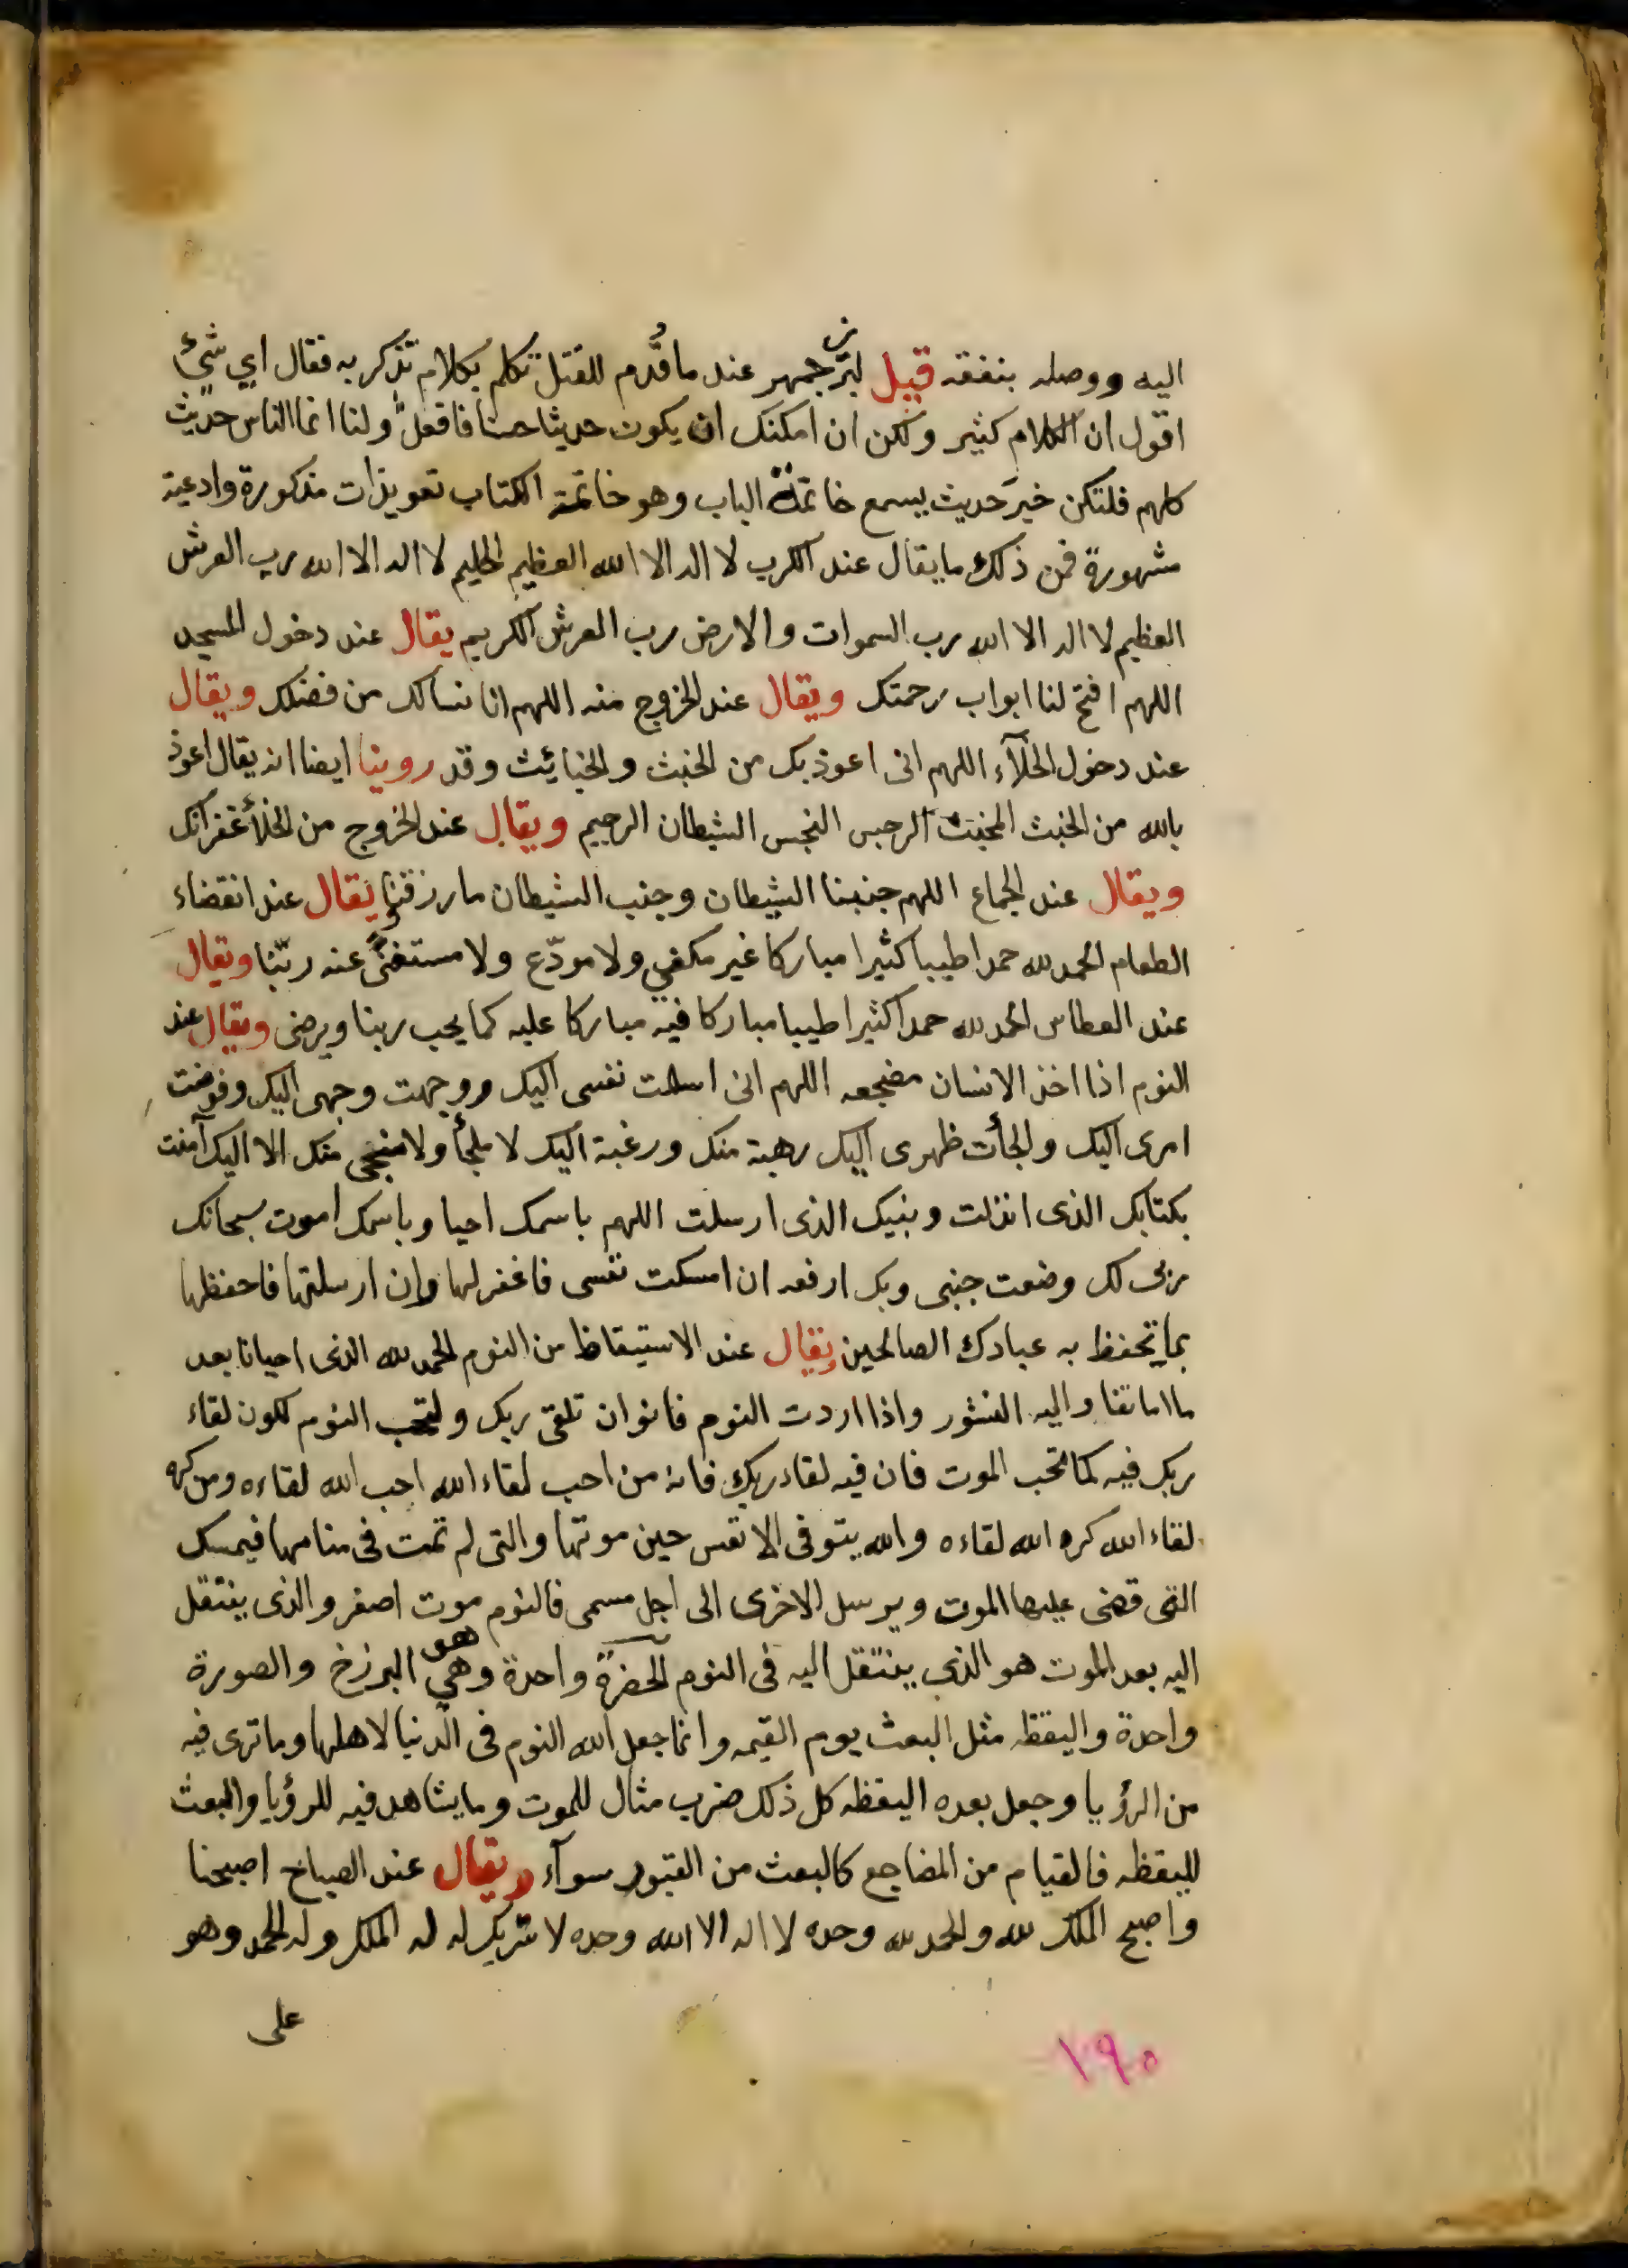 اليه ووصله بنفقه قيل لبزرجمهر عند ما قُدّم للقتل تكلم بكلام تذكر به فقال اي شئ
اقول ان الكلام كثير ولكن ان امكنك ان يكون حديثا حسنا فافعل ولنا انما الناس حديث
كلهم فلتكن خير حديث يسمع خاتمة الباب وهو خاتمة الكتاب تعويذات مذكورة وادعية
مشهورة فمن ذلك ما يقال عند الكرب لا اله الا الله العظيم الحليم لا اله الا الله رب العرش
العظيم لا اله الا الله رب السموات والارض رب العرش الكريم يقال عند دخول المسجد
اللهم افتح لنا ابواب رحمتك ويقال عند الخروج منه اللهم انا نسالك من فضلك ويقال
عند دخول الخلآء اللهم انى اعوذ بك من الخبث والخبايئث وقد روينا ايضا انه يقال اعوذ
بالله من الخبث المخبث الرجس النجس الشيطان الرجيم ويقال عند الخروج من الخلأ غفرانك
ويقال عند الجماع اللهم جنبنا الشيطان وجنب الشيطان ما رزقتنا ويقال عند انقضاء
الطعام الحمد لله حمدا طيبا كثيرا مباركا غير مكفي ولا مودّع ولا مستغنًى عنه ربّنا ويقال
عند العطاس الحمد لله حمدا كثيرا طيبا مباركا فيه مباركا عليه كما يحب ربنا ويرضى ويقال عند
النوم اذا اخذ الانسان مضجعه اللهم انى اسلمت نفسى اليك ووجهت وجهى اليك وفوضت
امرى اليك والجأت ظهرى اليك رهبة منك ورغبة اليك لا ملجأ ولا منجى منك الا اليك آمنت
بكتابك الذى انزلت وبنبيك الذى ارسلت اللهم باسمك احيا وباسمك اموت سبحانك
ربى لك وضعت جنبى وبك ارفعه ان امسكت نفسى فاغفر لها وإن ارسلتها فاحفظها
بما تحفظ به عبادك الصالحين ويقال عند الاستيقاظ من النوم الحمد لله الذى احيانا بعد
ما اماتنا واليه النشور واذا اردت النوم فانوان تلقى ربك ولتحب النوم لكون لقاء
ربك فيه كما تحب الموت فان فيه لقاء ربك فانه من احب لقاء الله احب الله لقاءه ومن كره
لقاء الله كره الله لقاءه والله يتوفى الانفس حين موتها والتى لم تمت فى منامها فيمسك
التى قضى عليها الموت ويرسل الاخرى الى اجل مسمى فالنوم موت اصغر والذى ينتقل
اليه بعد الموت هو الذى ينتقل اليه فى النوم الحضرة واحدة وهي هو البرزخ والصورة
واحدة واليقظه مثل البعث يوم القيمه وانما جعل الله النوم فى الدنيا لاهلها وما ترى فيه
من الرؤيا وجعل بعده اليقظه كل ذلك ضرب مثال للموت وما يشاهد فيه للرؤيا والبعث
لليقظه فالقيام من المضاجع كالبعث من القبور سوآء ويقال عند الصباح اصبحنا
واصبح الملك لله والحمد لله وحده لا اله الا الله وحده لا شريك له له الملك وله الحمد وهو
على
١٩٥